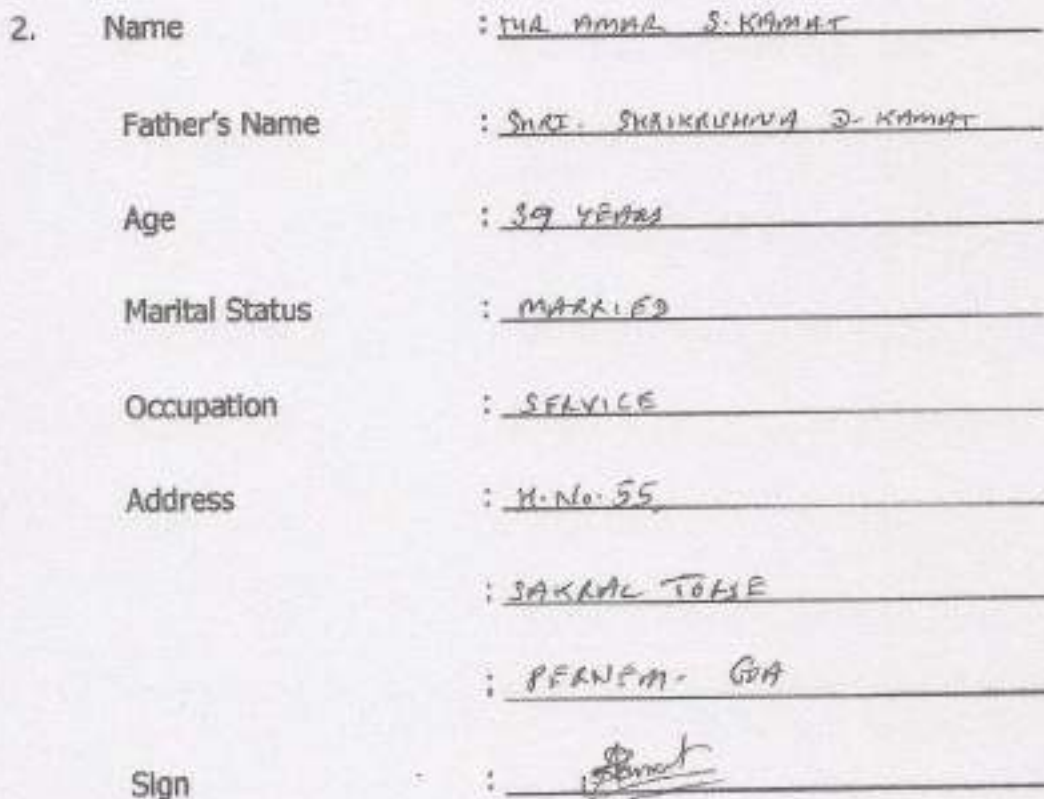 2. Name : MR AMAR S. KAMAT
Father's Name : SHRI. SHRIKRISHNA D. KAMAT
Age : 39 YEARS
Marital Status : MARRIED
Occupation : SERVICE
Address : H. No. 55
: SAKRAL TORSE
: PERNEM. GOA
Sign : Kamat